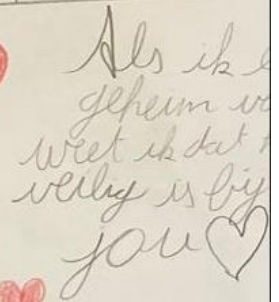 Als ik
geheim
weet ik dat
veilig is bij
jou